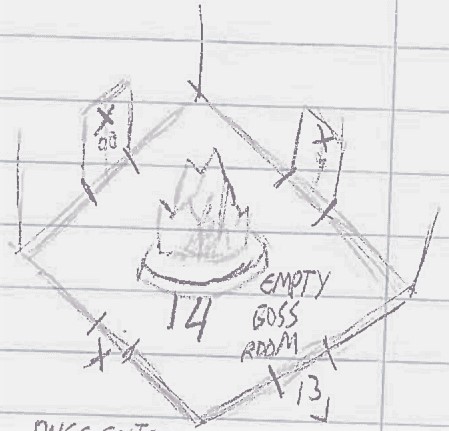 X
X
14
EMPTY
BOSS
ROOM
X
13